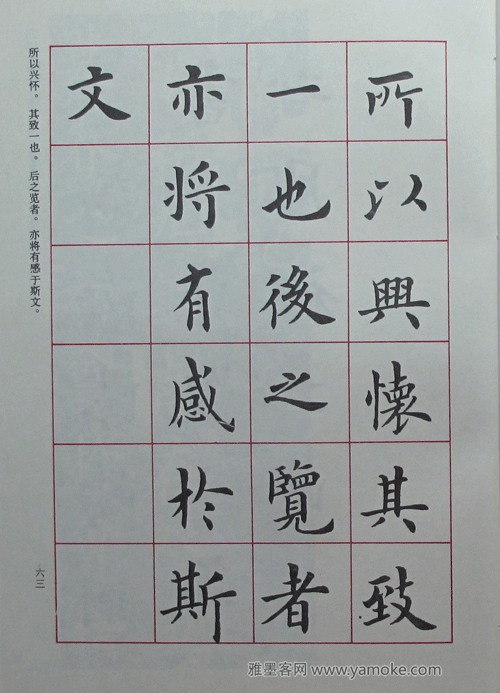 所以興懷其致
一也後之覽者
亦将有感於斯
文
所以兴怀。其致一也。后之览者。亦将有感于斯文。
六三
雅墨客网 www.yamoke.com